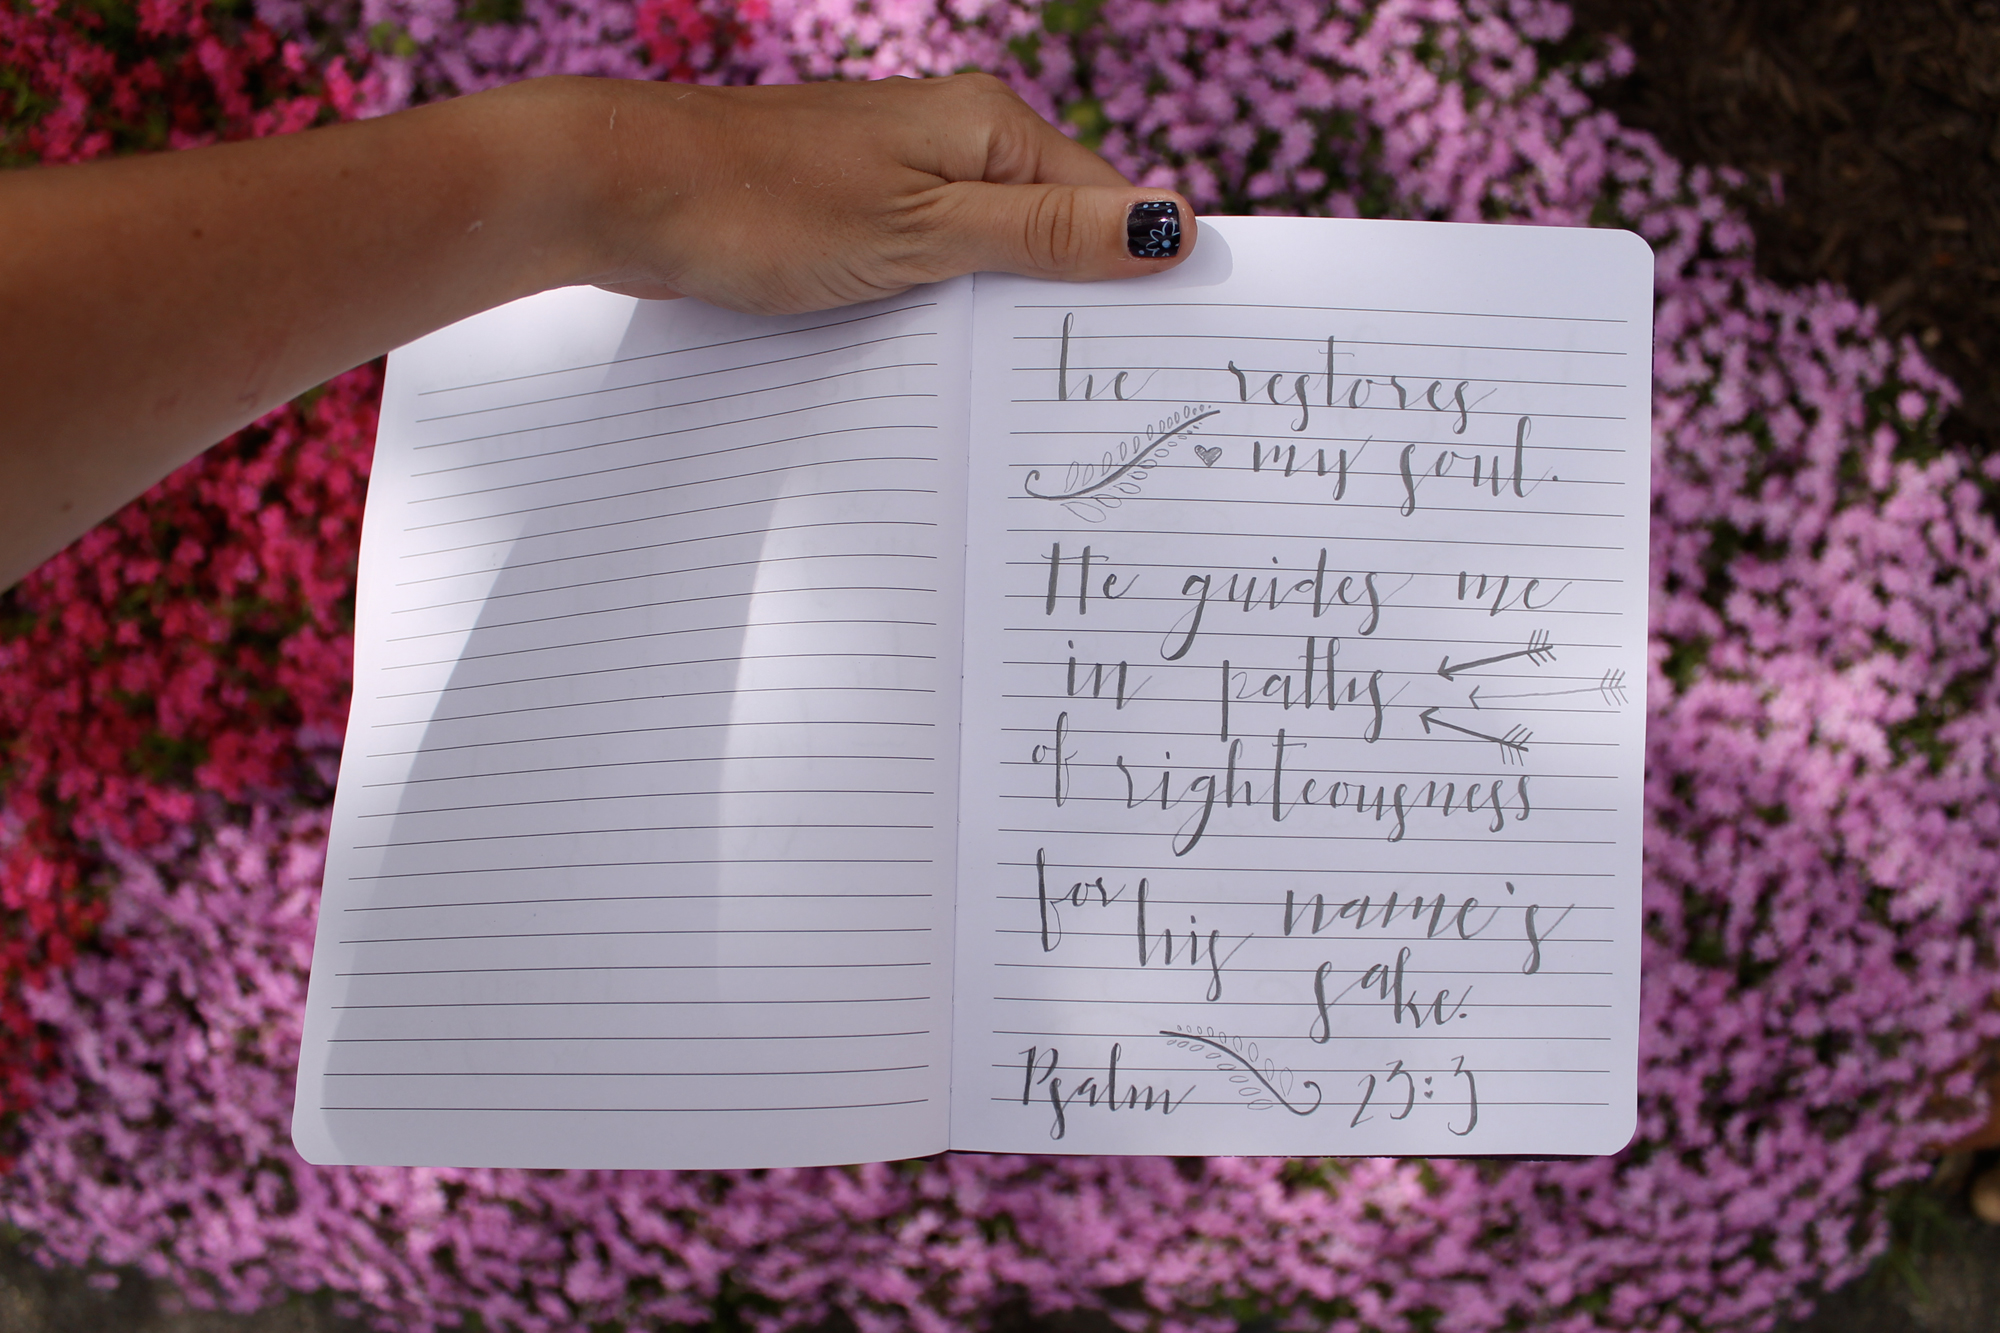 he restores
my soul.
He guides me
in paths
of righteousness
for his name's
sake.
Psalm 23:3